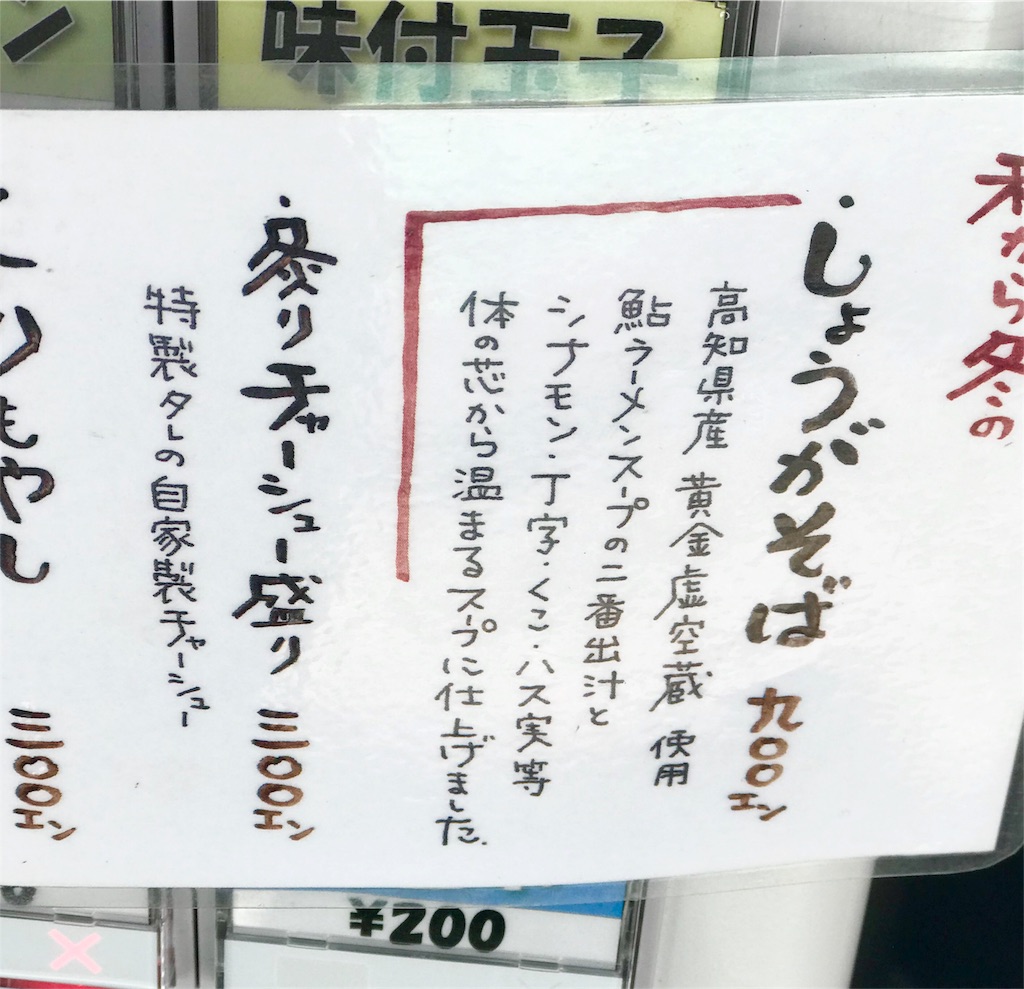 味付玉子
秋から冬の
・しょうがそば 九〇〇エン
高知県産 黄金虚空蔵 使用
鮎ラーメンスープの二番出汁と
シナモン・丁字・くこ・ハス実等
体の芯から温まるスープに仕上げました.
・炙りチャーシュー盛り 三〇〇エン
特製タレの自家製チャーシュー
もやし 三〇〇エン
¥200